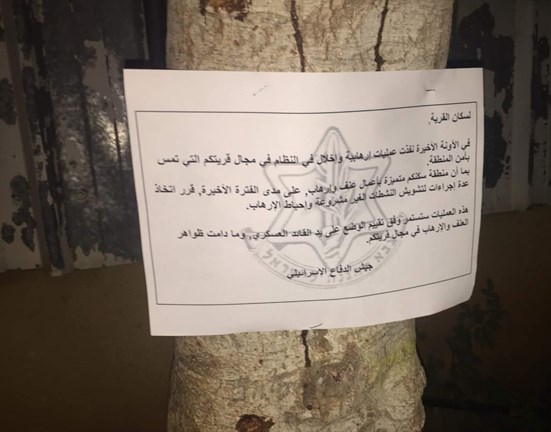 لسكان القرية,
في الآونة الأخيرة نفذت عمليات إرهابية وإخلال في النظام في مجال قريتكم التي تمس
بأمن المنطقة.
بما أن منطقة سكنكم متميزة بأعمال عنف وإرهاب, على مدى الفترة الأخيرة, قرر اتخاذ
عدة إجراءات لتشويش النشطات الغير مشروعة وإحباط الإرهاب.
هذه العمليات ستستمر وفق تقييم الوضع على يد القائد العسكري, وما دامت ظواهر
العنف والإرهاب في مجال قريتكم.
جيش الدفاع الإسرائيلي